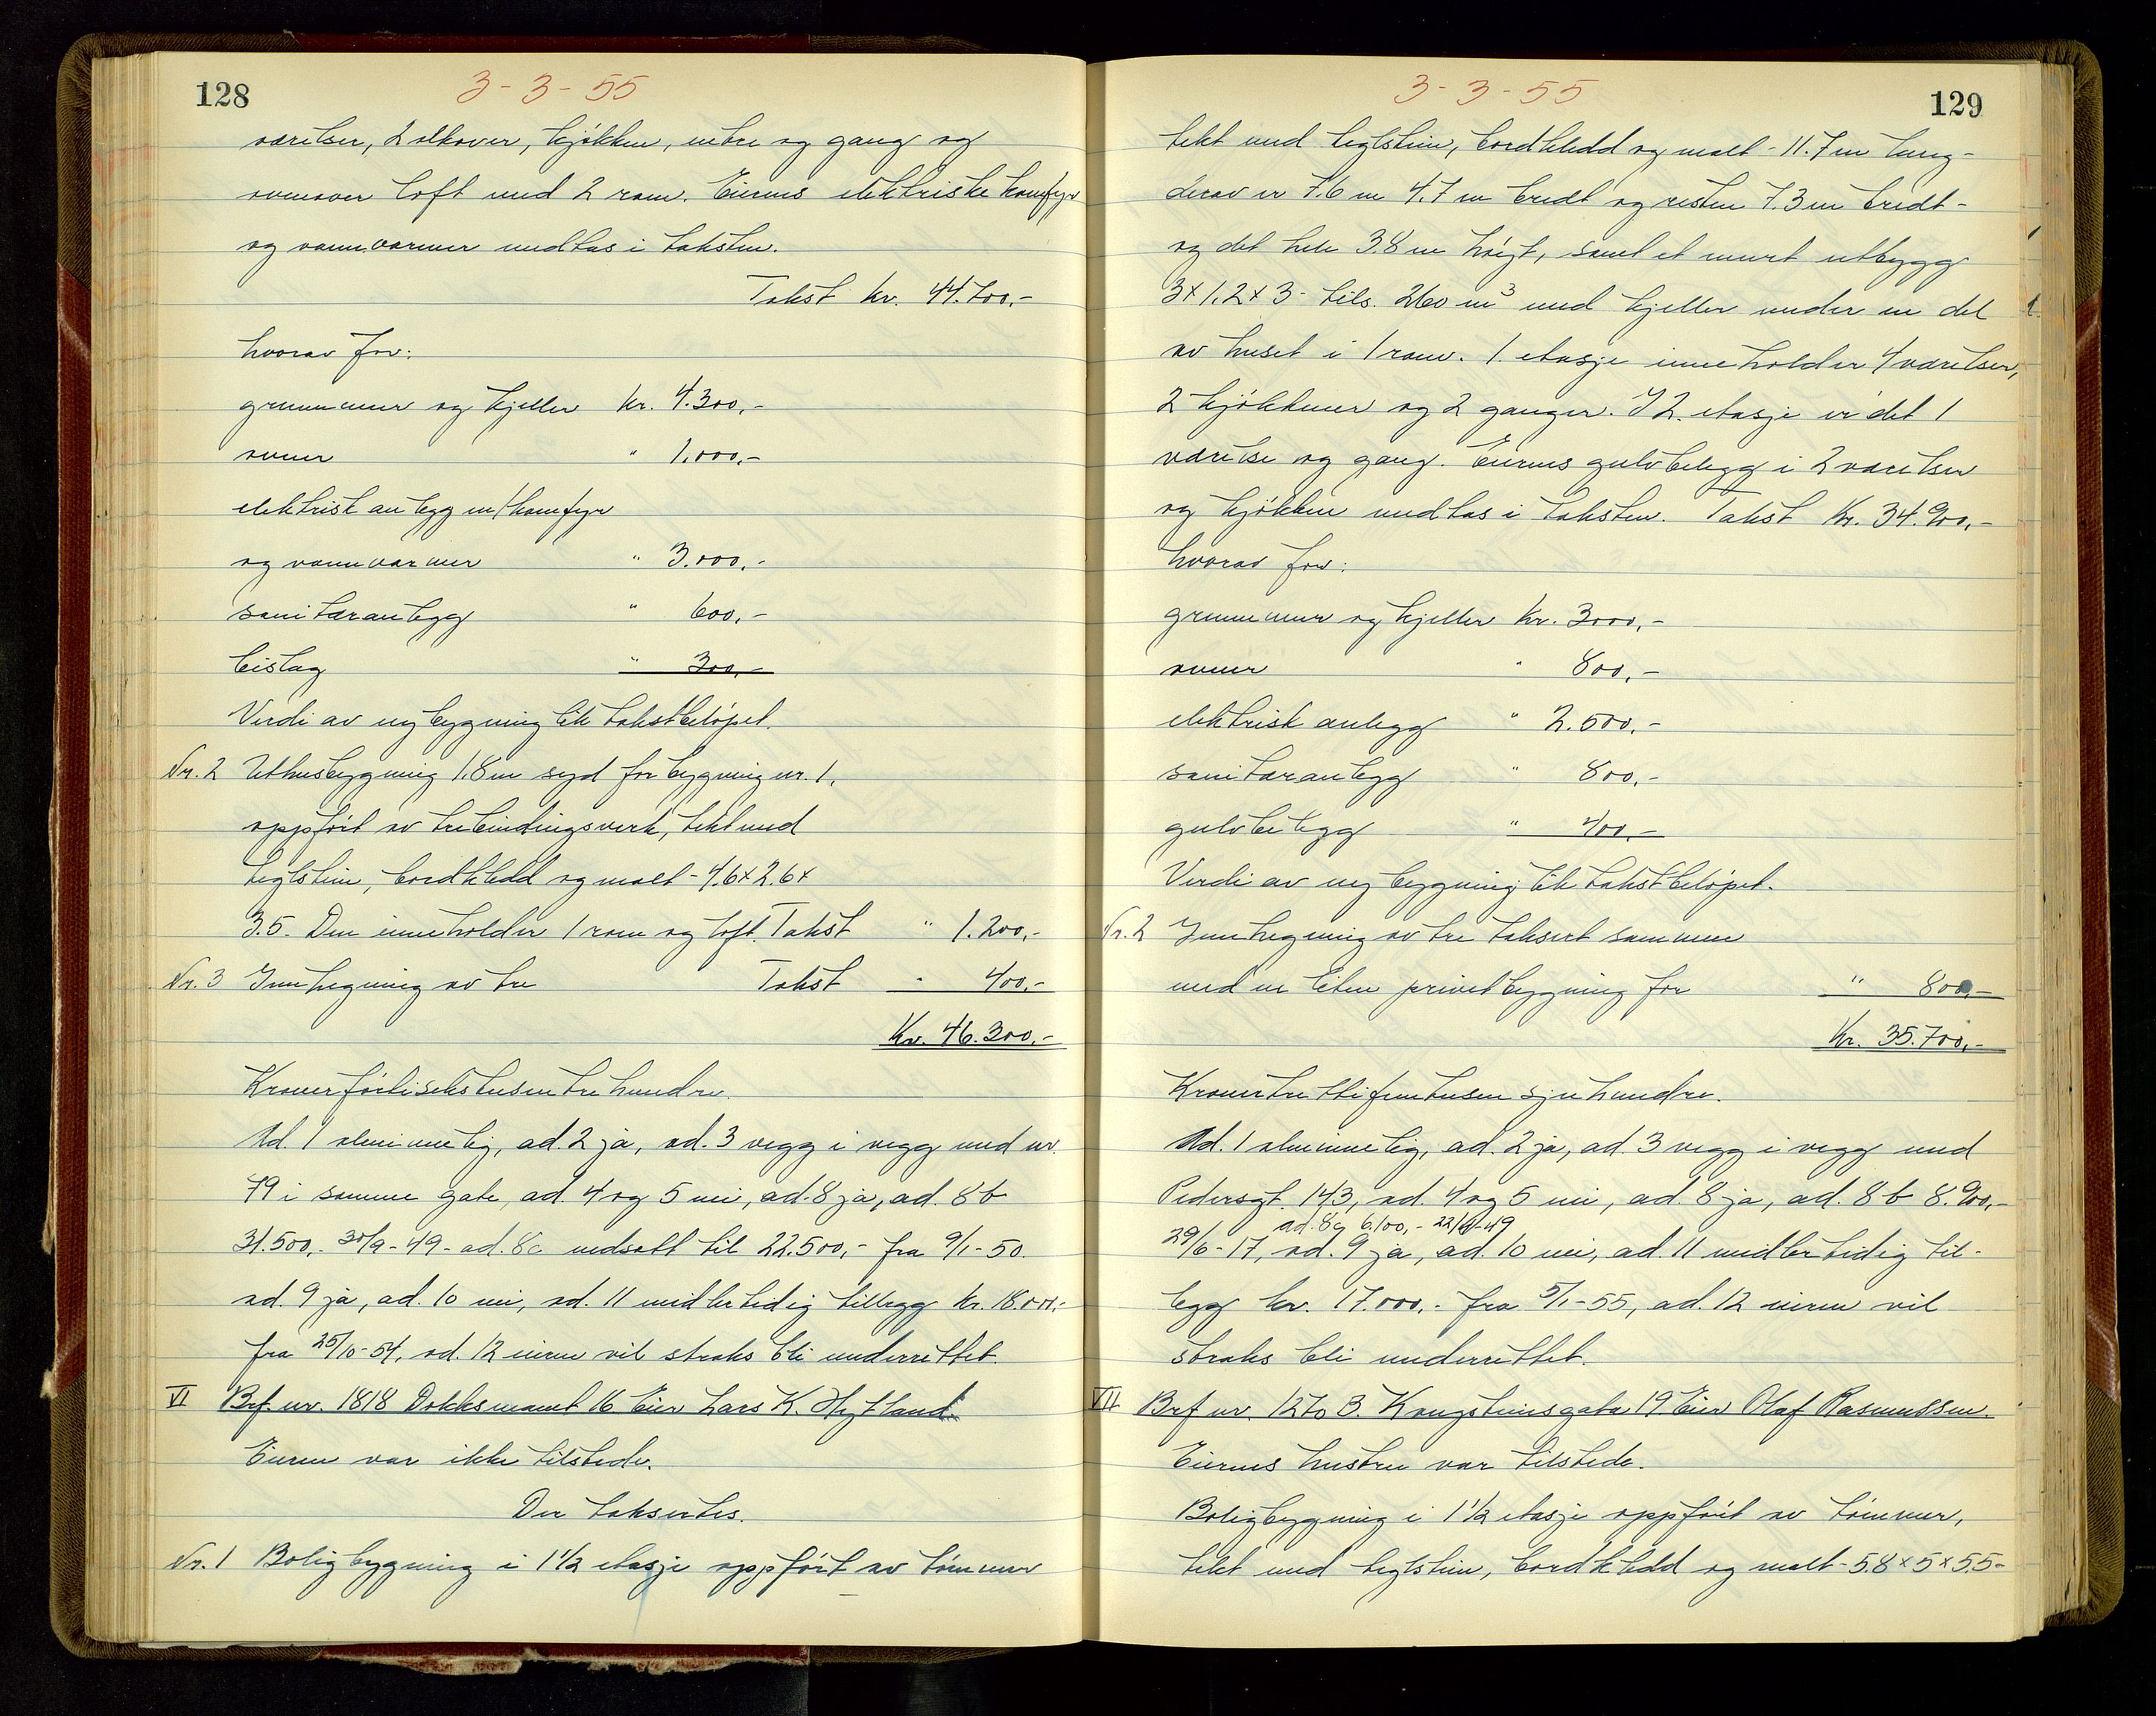 128
3-3-55
værelser, 2 alkover, kjøkken, entre og gang og
ovenover loft med 2 rom. Eierens elektriske komfyr
og vannvarmer medtas i taksten.
Takst kr. 44.700,-
hvorav for:
grunnmur og kjeller kr. 4.300,-
ovner " 1.000,-
elektrisk anlegg m/komfyr
og vannvarmer " 3.000,-
sanitæranlegg " 600,-
bislag " 300,-
Verdi av ny bygning lik takstbeløpet.
Nr. 2 Uthusbygning 1,8 m syd for bygning nr. 1,
oppført av trebindingsverk, tekt med
teglstein, bordkledd og malt - 4.6 x 2.6 x
3.5. Den inneholder 1 rom og loft. Takst " 1.200,-
Nr. 3 Innhegning av tre Takst " 400,-
Kr. 46.300,-
Kroner førtisekstusentrehundre.
Ad. 1 alminnelig, ad. 2 ja, ad. 3 vegg i vegg med nr.
79 i samme gate, ad. 4 og 5 nei, ad. 8 ja, ad. 8 b
31.500,- 30/9-49 - ad. 8c nedsatt til 22.500,- fra 9/1-50.
ad. 9 ja, ad. 10 nei, ad. 11 midlertidig tillegg kr. 18.000,-
fra 25/10-54, ad. 12 eieren vil straks bli underrettet.
VI Brf. nr. 1818 Dokksmauet 16 Eier Lars K. Hytland.
Eieren var ikke tilstede.
Der taksertes.
Nr. 1 Boligbygning i 1 1/2 etasje oppført av tømmer
129
3-3-55
tekt med teglstein, bordkledd og malt - 11.7 m lang -
derav er 7.6 m 4.7 m bredt og resten 7.3 m bredt -
og det hele 3.8 m høigt, samt et murt utbygg
3 x 1.2 x 3 - tils. 260 m3 med kjeller under en del
av huset i 1 rom. 1. etasje inneholder 4 værelser,
2 kjøkkener og 2 ganger. I 2. etasje er det 1
værelse og gang. Eierens gulvbelegg i 2 værelser
og kjøkken medtas i taksten. Takst Kr. 34.900,-
hvorav for:
grunnmur og kjeller kr. 3000,-
ovner " 800,-
elektrisk anlegg " 2.500,-
sanitæranlegg " 800,-
gulvbelegg " 400,-
Verdi av ny bygning lik takstbeløpet.
Nr. 2 Innhegning av tre taksert sammen
med en liten privetbygning for " 800,-
Kr. 35.700,-
Kronertrettifemtusensjuhundre.
Ad. 1 alminnelig, ad. 2 ja, ad. 3 vegg i vegg med
Pedersgt. 143, ad. 4 og 5 nei, ad. 8 ja, ad. 8 b 8.900,-
ad. 8c 6.100,-
29/6-17, ad. 9 ja, ad. 10 nei, ad. 11 midlertidig til-
legg kr. 17.000,- fra 5/1-55, ad. 12 eieren vil
straks bli underrettet.
VII Brf nr. 1270 B. Kongsteinsgata 19 Eier Olaf Rasmussen.
Eierens hustru var tilstede.
Boligbygning i 1 1/2 etasje oppført av tømmer,
tekt med teglstein, bordkledd og malt - 5.8 x 5 x 5.5 -